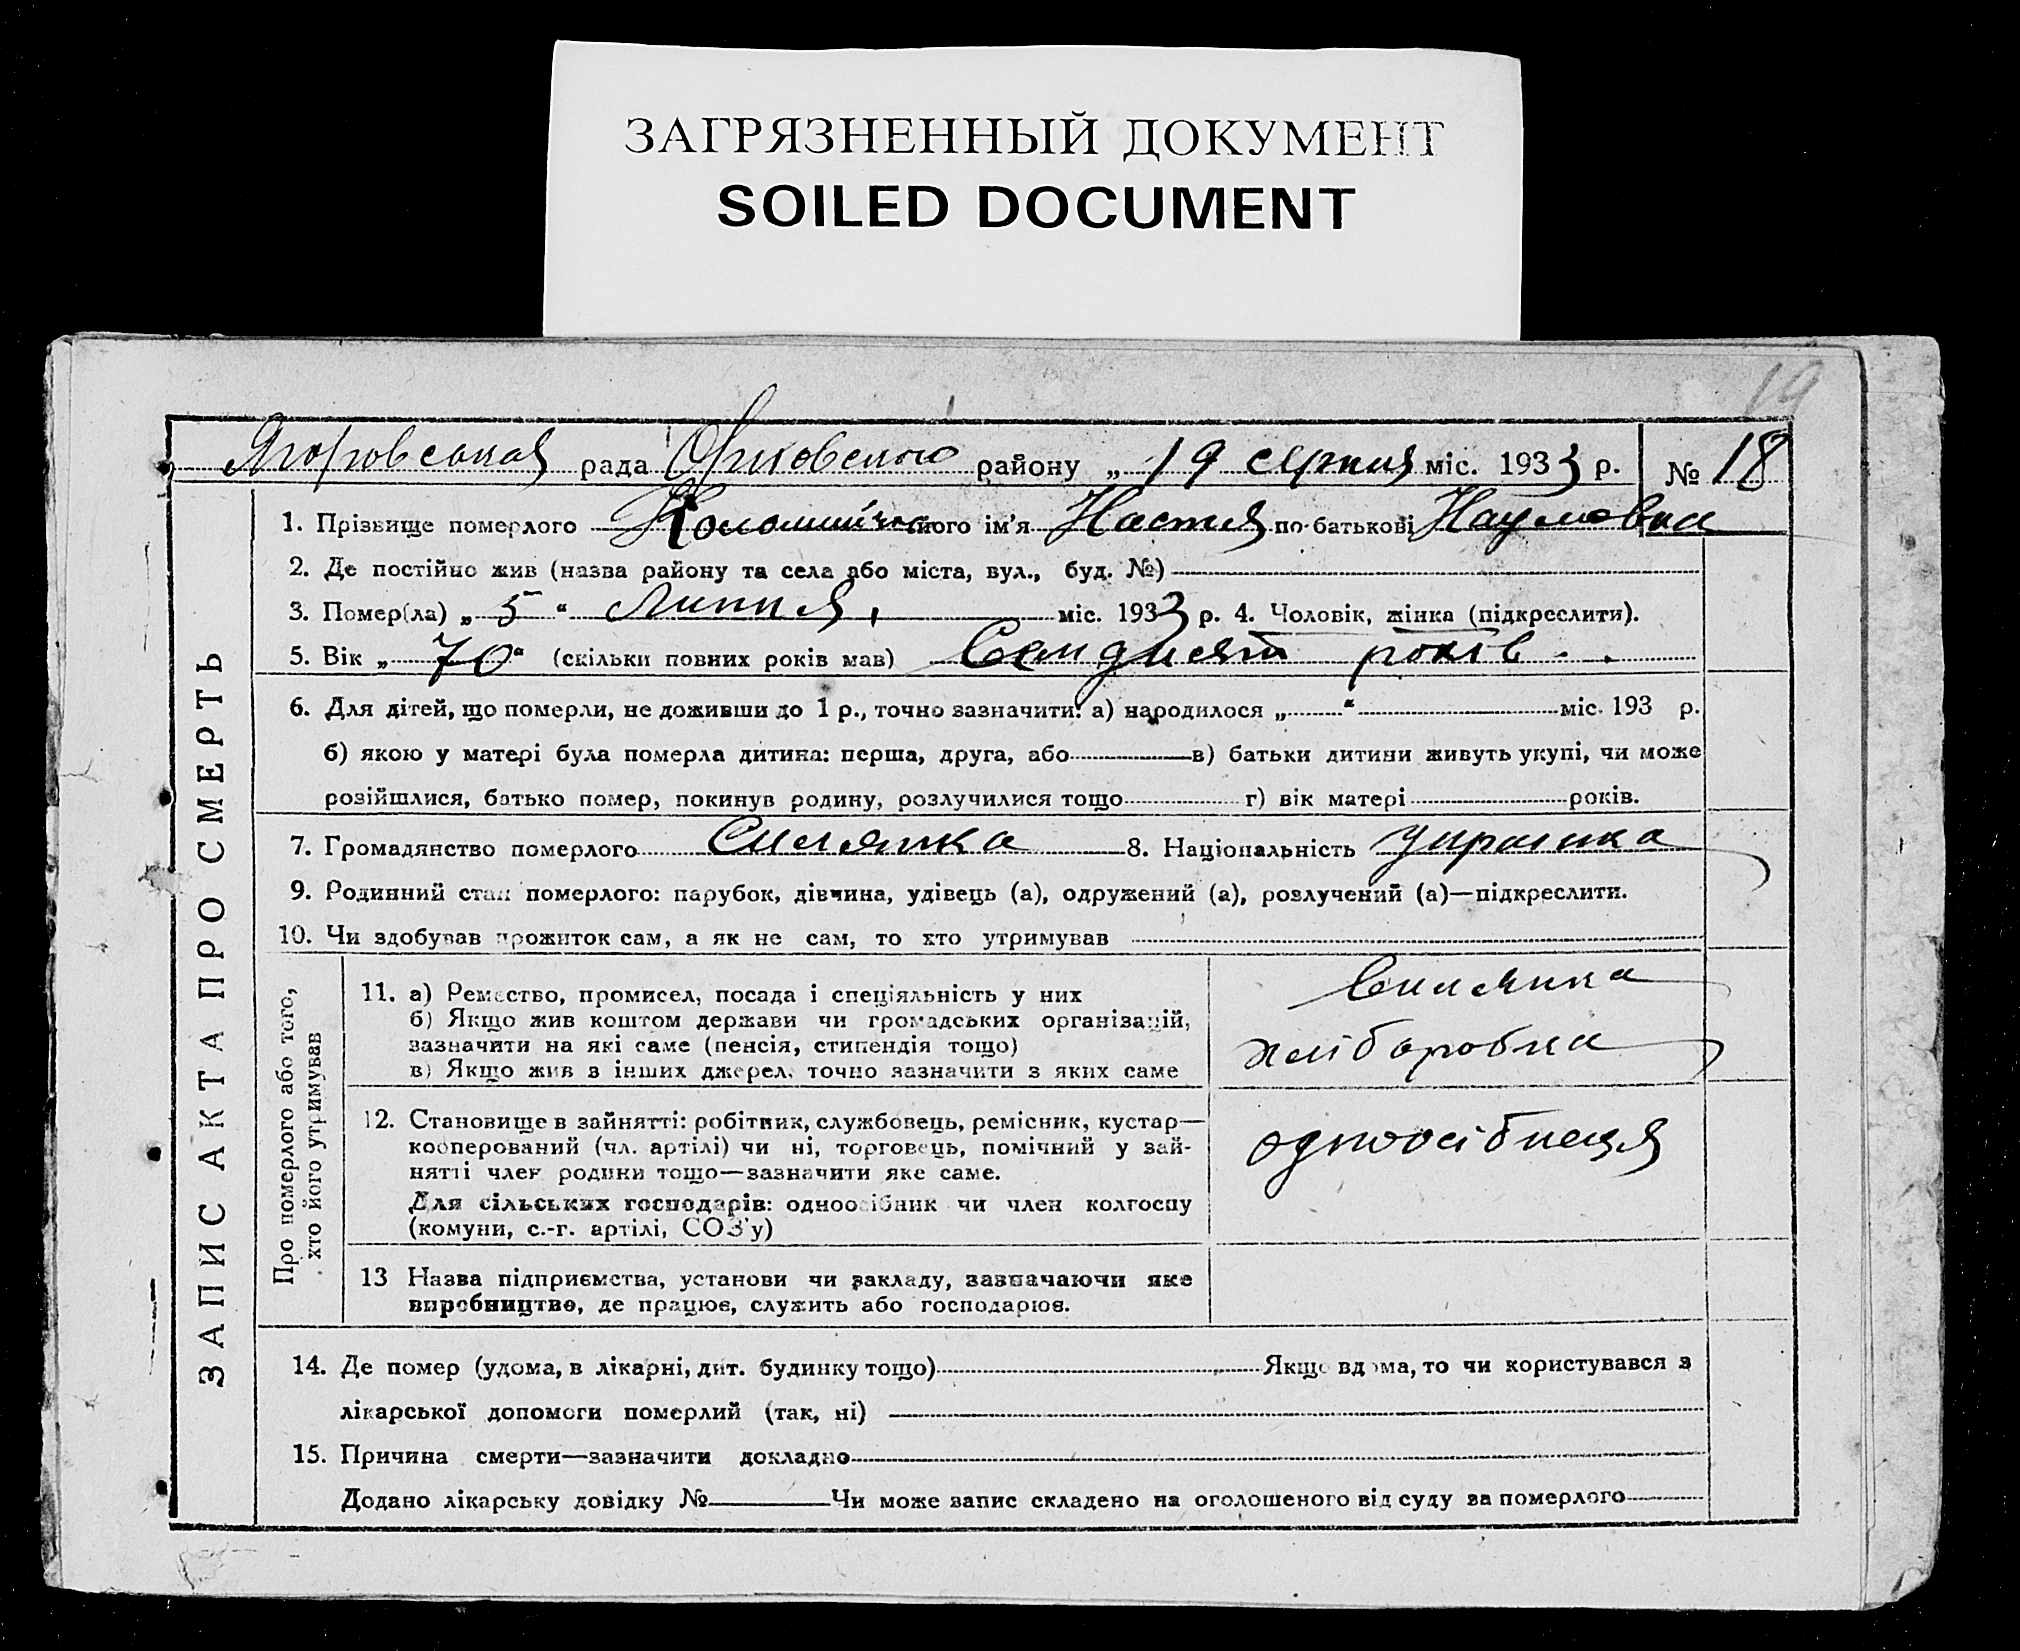 ЗАГРЯЗНЕННЫЙ ДОКУМЕНТ
SOILED DOCUMENT
19
рада району „ 19 серпня міс. 1933 р. № 18
ЗАПИС АКТА ПРО СМЕРТЬ
1. Прізвище померлого його ім'я Настя по-батькові Наумовна
2. Де постійно жив (назва району та села або міста, вул., буд. №)
3. Помер(ла) „ 5 “ Липня, міс. 1933 р. 4. Чоловік, жінка (підкреслити).
5. Вік „ 70 “ (скільки повних років мав) Семдисят років
6. Для дітей, що померли, не доживши до 1 р., точно зазначити: а) народилося „ “ міс. 193 р.
б) якою у матері була померла дитина: перша, друга, або в) батьки дитини живуть укупі, чи може
розійшлися, батько помер, покинув родину, розлучилися тощо г) вік матері років.
7. Громадянство померлого Силянка 8. Національність украинка
9. Родинний стан померлого: парубок, дівчина, удівець (а), одружений (а), розлучений (а)—підкреслити.
10. Чи здобував прожиток сам, а як не сам, то хто утримував
Про померлого або того,
хто його утримував
11. а) Ремество, промисел, посада і спеціяльність у них
б) Якщо жив коштом держави чи громадських організацій,
зазначити на які саме (пенсія, стипендія тощо)
в) Якщо жив з інших джерел, точно зазначити з яких саме
Силянка
хліборобка
12. Становище в зайнятті: робітник, службовець, ремісник, кустар—
кооперований (чл. артілі) чи ні, торговець, помічний у зай-
нятті член родини тощо—зазначити яке саме.
Для сільських господарів: одноосібник чи член колгоспу
(комуни, с.-г. артілі, СОЗ'у)
одноосібнеця
13 Назва підприємства, установи чи закладу, зазначаючи яке
виробництво, де працює, служить або господарює.
14. Де помер (удома, в лікарні, дит. будинку тощо) Якщо вдома, то чи користувався з
лікарської допомоги померлий (так, ні)
15. Причина смерти—зазначити докладно
Додано лікарську довідку № Чи може запис складено на оголошеного від суду за померлого